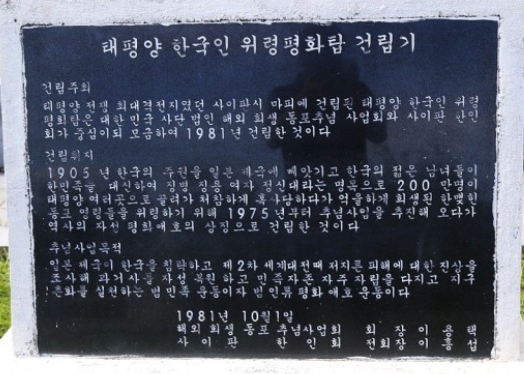 태평양 한국인 위령평화탑 건립기
건립주회
태평양 전쟁 최대격전지였던 사이판시 마피에 건립된 태평양 한국인 위령
평화탑은 대한민국 사단법인 해외 희생 동포추념 사업회와 사이판 한인
회가 중심이되 모금하여 1981년 건립한 것이다
건립취지
1905 년 한국의 주권을 일본 제국에 빼앗기고 한국의 젊은 남녀들이
한민족을 대신하여 징병 징용 여자 정신대라는 명목으로 200 만명이
태평양 여러곳으로 끌려가 처참하게 혹사당하다가 억울하게 희생된 한맺힌
동포 영령들을 위령하기 위해 1975년부터 추념사업을 추진해 오다가
역사의 자성 평화애호의 상징으로 건립한 것이다
추념사업목적
일본 제국이 한국을 침탈하고 제2차 세계대전때 저지른 피해에 대한 진상을
조사해 과거사를 자성 복원하고 민족자존 자주자립을 다지고 지구
촌화를 실현하는 범민족 운동이자 범인류 평화 애호 운동이다
1981년 10월1일
해외 희생 동포 추념사업회 회 장 이 용 택
사 이 판 한 인 회 전회장 이 흥 섭